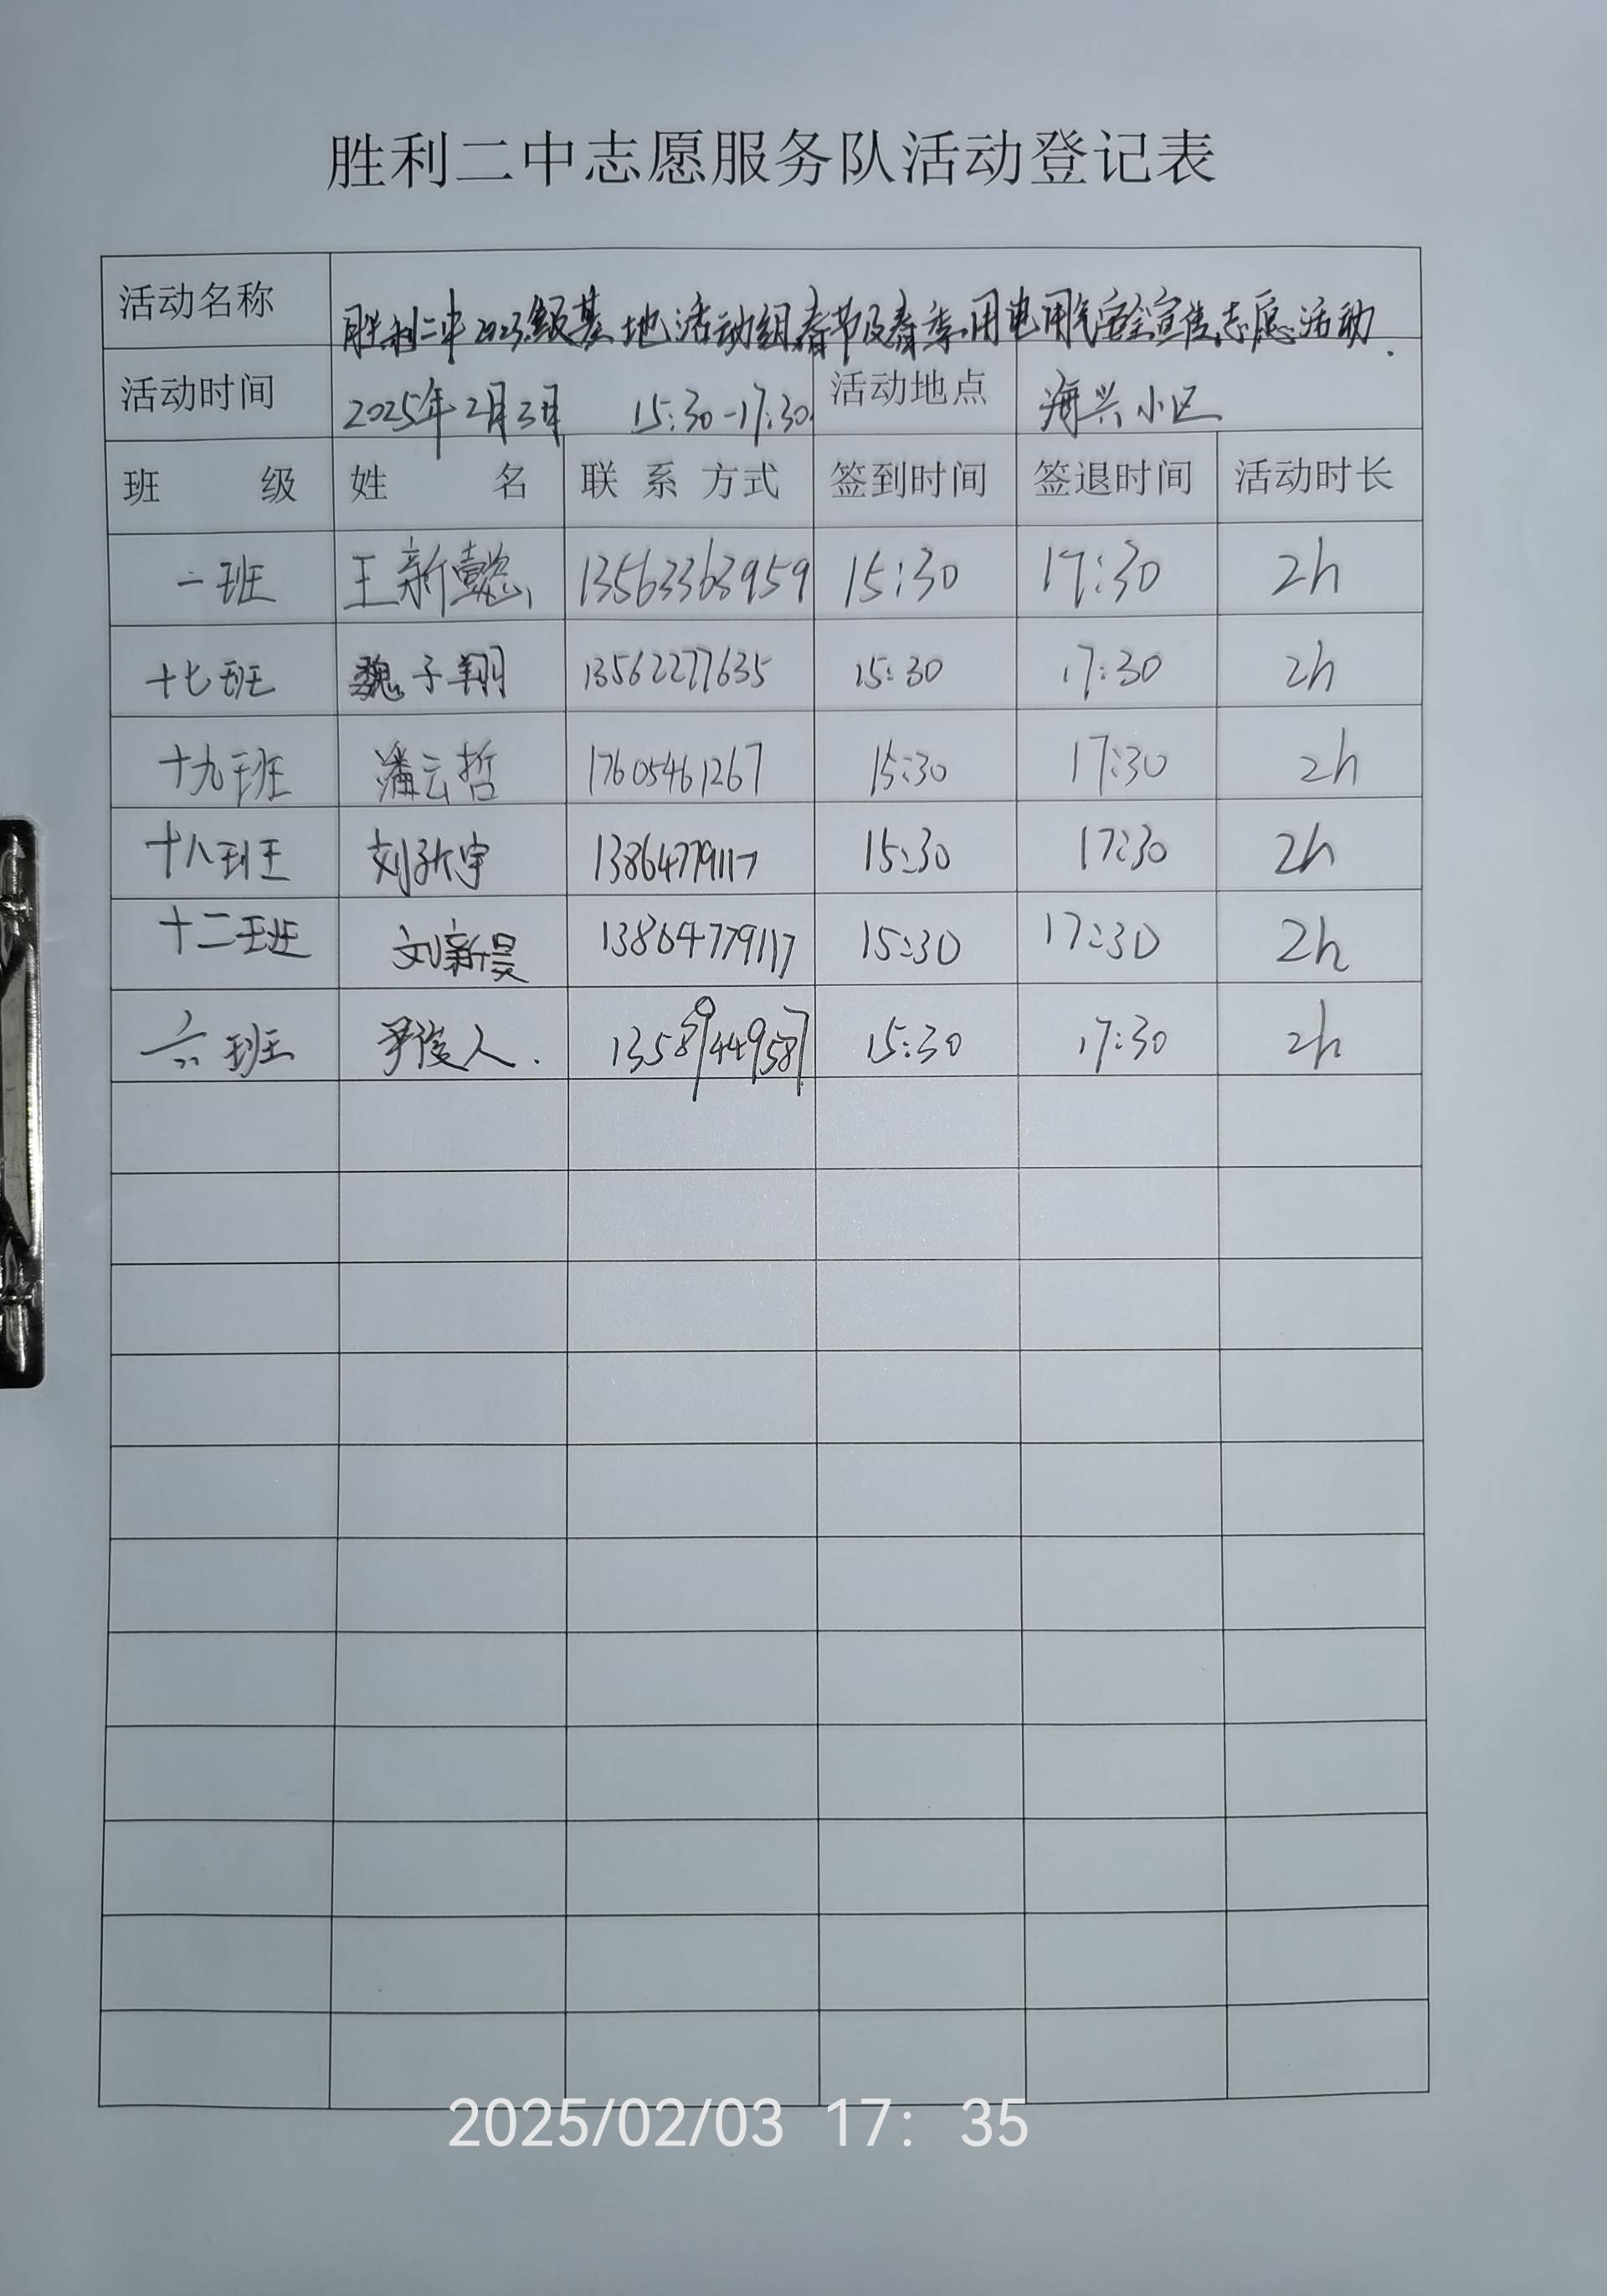 胜利二中志愿服务队活动登记表
活动名称 胜利二中2023级基地活动组春节及春季用电用气安全宣传志愿活动.
活动时间 2025年2月3日 15:30-17:30 活动地点 海兴小区
班 级 姓 名 联 系 方式 签到时间 签退时间 活动时长
二班 王新懿 13563363959 15:30 17:30 2h
十七班 魏子翔 13562277635 15:30 17:30 2h
十九班 潘云哲 17605461267 15:30 17:30 2h
十八班 刘新宇 13864779117 15:30 17:30 2h
十二班 刘新昊 13864779117 15:30 17:30 2h
六班 尹俊人. 13589449587 15:30 17:30 2h
2025/02/03 17: 35